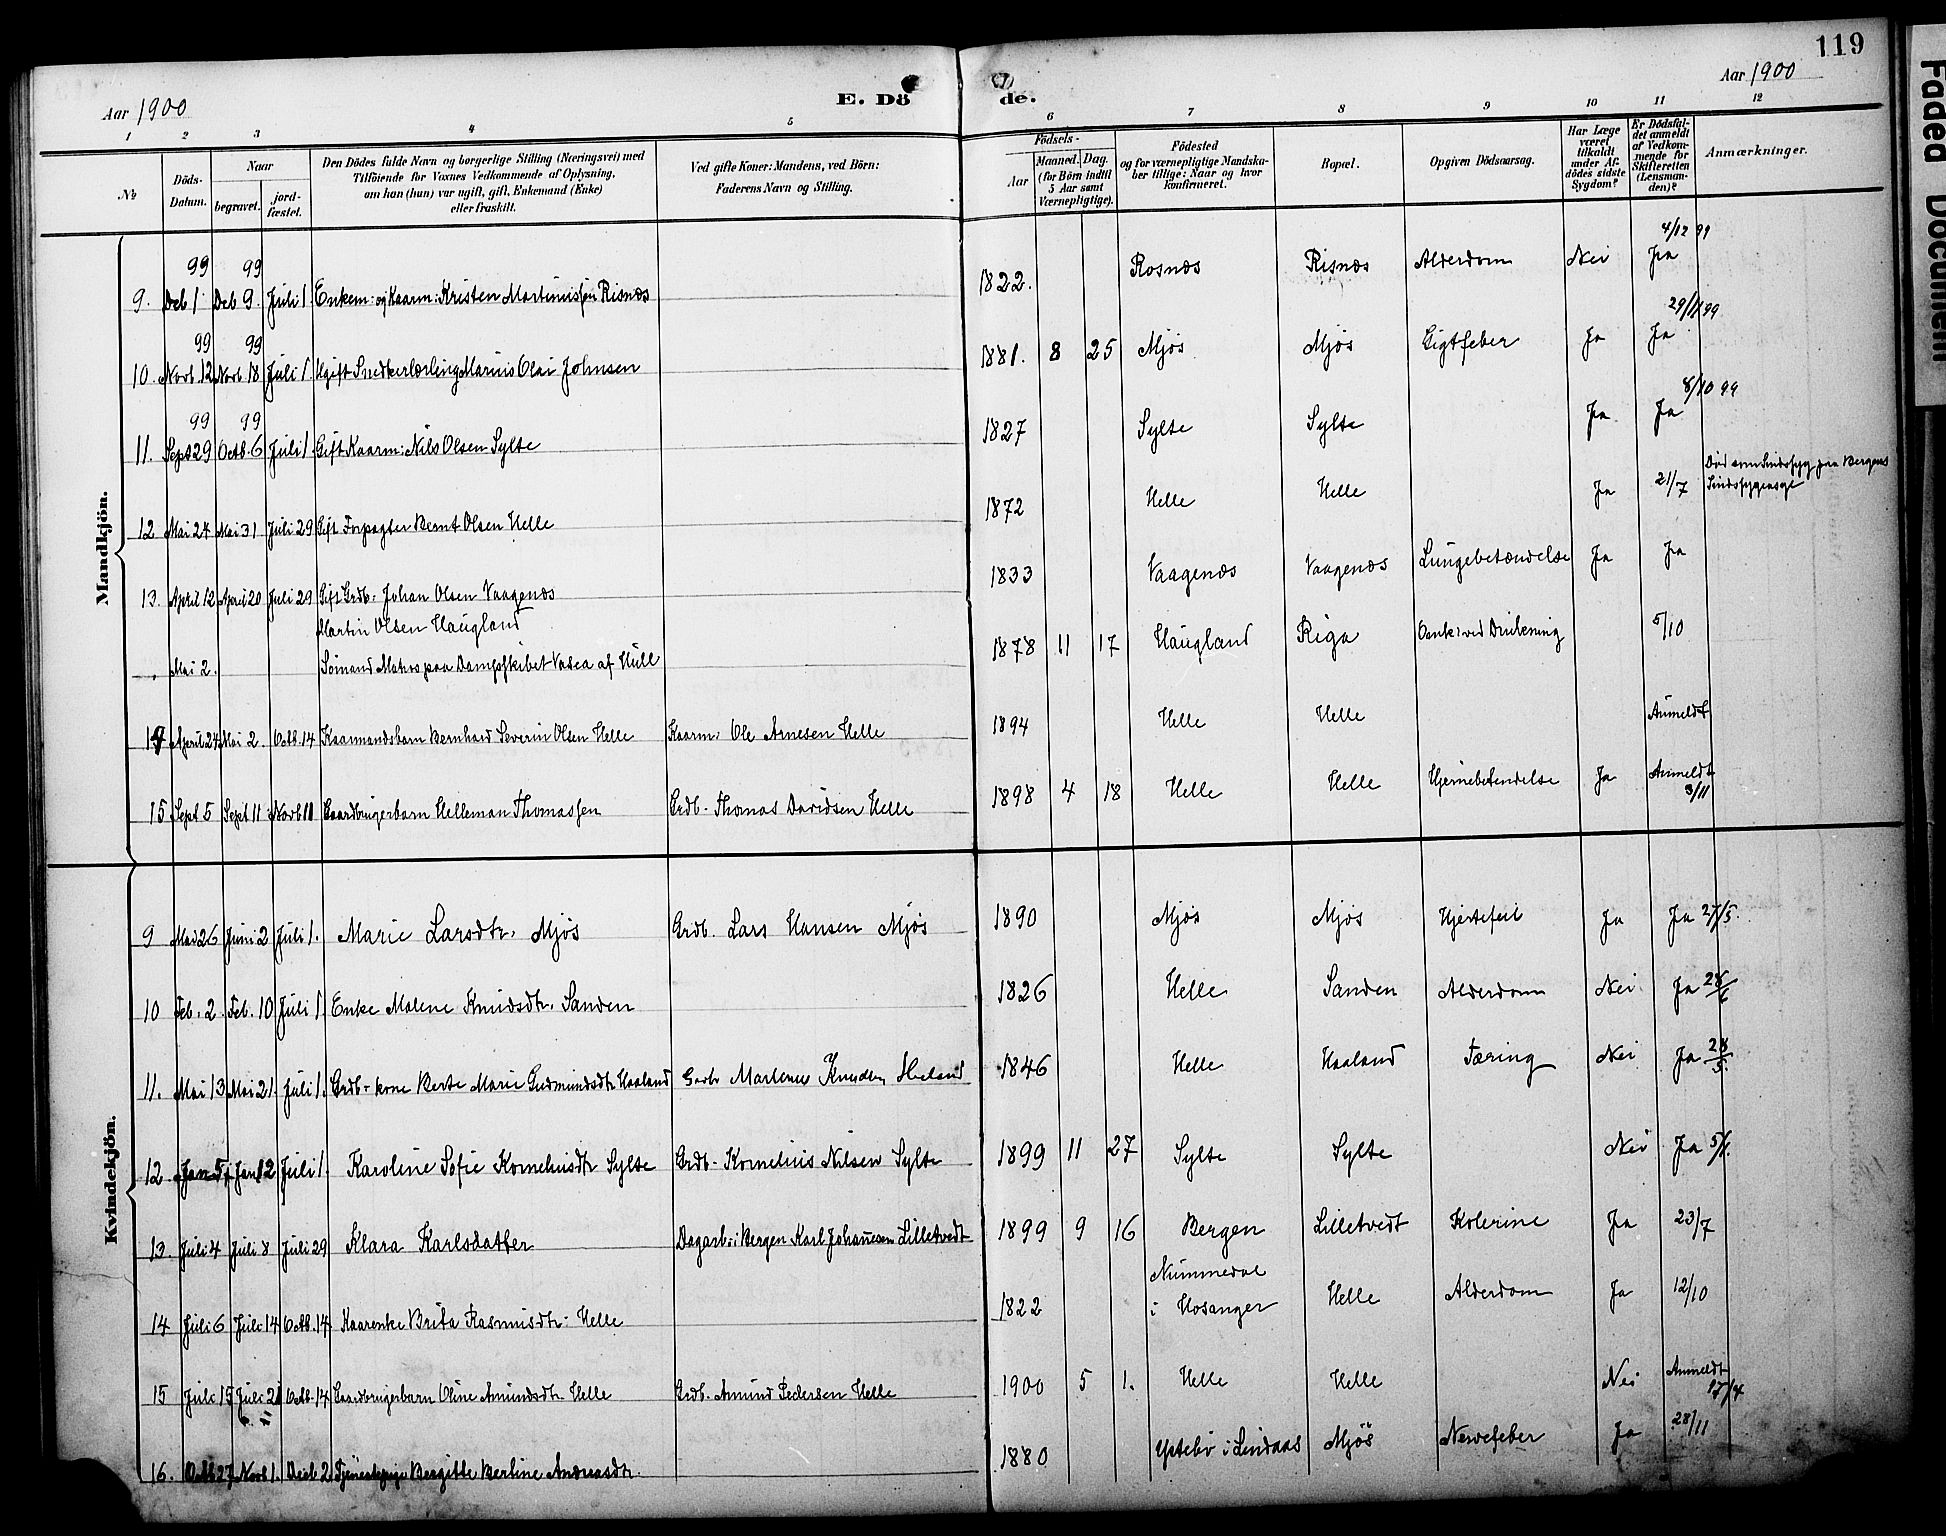 119
Aar 1900
E. Dö
de.
Aar 1900
1 2 3 4 5 6 7 8 9 10 11 12
№
Döds-Datum.
Naar
begravet.
jord-fæstet.
Den Dödes fulde Navn og borgerlige Stilling (Næringsvei) med
Tilföiende for Voxnes Vedkommende af Oplysning,
om han (hun) var ugift, gift, Enkemand (Enke)
eller fraskilt.
Ved gifte Koner: Mandens, ved Börn:
Faderens Navn og Stilling.
Födsels-
Aar
Maaned. Dag.
(for Börn indtil
5 Aar samt
Værnepligtige).
Födested
og for værnepligtige Mandska-
ber tillige: Naar og hvor
konfirmeret.
Bopæl.
Opgiven Dödsaarsag.
Har Læge
været
tilkaldt
under Af-
dödes sidste
Sygdom?
Er Dödsfal-
det anmeldt
af Vedkom-
mende for
Skifteretten
(Lensman-
den)?
Anmærkninger.
Mandkjön.
99 99 4/12 99
9. Deb 1 Deb 9. Juli 1 Enkem: og Kaarm: Kristen Martinussen Risnæs 1822. Rosnæs Risnæs Alderdom Nei Ja
99 99 29/11 99
10. Novb. 12 Novb 18 Juli 1. Ugift Snedkerlærling Marius Olai Johnsen 1881. 8 25 Mjøs Mjøs Gigtfeber Ja Ja
99 99 8/10 99
11. Sept 29 Octb. 6 Juli 1. Gift Kaarm: Nils Olsen Sylte 1827 Sylte Sylte Ja Ja
12 Mai 24 Mai 31 Juli 29 Gift Forpagter Bernt Olsen Helle 1872 Helle Helle Ja 21/7 Død som Sindssyg paa Bergens
Sindssygeasyl
13. April 12 April 20 Juli 29 Gift Grdb. Johan Olsen Vaagenæs 1833 Vaagenæs Vaagenæs Lungebetændelse Ja Ja
Martin Olsen Haugland
Mai 2. Sømand Matros paa Dampskibet Vasca af Hull 1878 11 17 Haugland Riga ved Drukning 5/10
14 April 24 Mai 2. Octb. 14 Kaarmandsbarn Bernhard Severin Olsen Helle Kaarm: Ole Arnesen Helle 1894 Helle Helle Anmeldt
15 Sept 5 Sept 11 Novb 11 Gaardbrugerbarn Helleman Thomassen Grdb. Thomas Davidsen Helle 1898 4 18 Helle Helle Hjernebetendelse Ja Anmeldt
3/11
Kvindekjön.
9 Mai 26 Juni 2 Juli 1. Marie Larsdtr. Mjøs Grdb. Lars Hansen Mjøs 1890 Mjøs Mjøs Hjertefeil Ja Ja 27/5.
10 Feb. 2. Feb. 10 Juli 1 Enke Malene Knudsdtr. Sanden 1826 Helle Sanden Alderdom Nei Ja 28/6
11. Mai 13 Mai 21. Juli 1. Grdb-kone Berte Marie Gudmundsdtr Haaland Martenus Knudsen 1846 Helle Haaland Tæring Nei Ja 28/5.
12. Jan 5 Jan 12 Juli 1. Karoline Sofie Korneliusdtr Sylte Grdb. Kornelius Nilsen Sylte 1899 11 27 Sylte Sylte Nei Ja 5/1.
13 Juli 4 Juli 8 Juli 29 Klara Karlsdatter Dagarb. i Bergen Karl Johannesen Lilletvedt 1899 9 16 Bergen Lilletvedt Kolerine Ja 23/7
14 Juli 6 Juli 14 Octb. 14 Kaarenke Brita Rasmusdtr. Helle 1822 Nummedal
i Hosanger Helle Alderdom Ja 12/10
15 Juli 15 Juli 21 Octb. 14 Gaardbrugerbarn Oline Amundsdtr. Helle Grdb. Amund Pedersen Helle 1900 5 1. Helle Helle Nei Anmeldt
17/4
16. Octb 27 Novb 1. Decb 2 Tjenestepige Bergitte Berline Andreasdtr. 1880 Ystebø i Lindaas Mjøs Nervefeber Ja 28/11
Faded Document